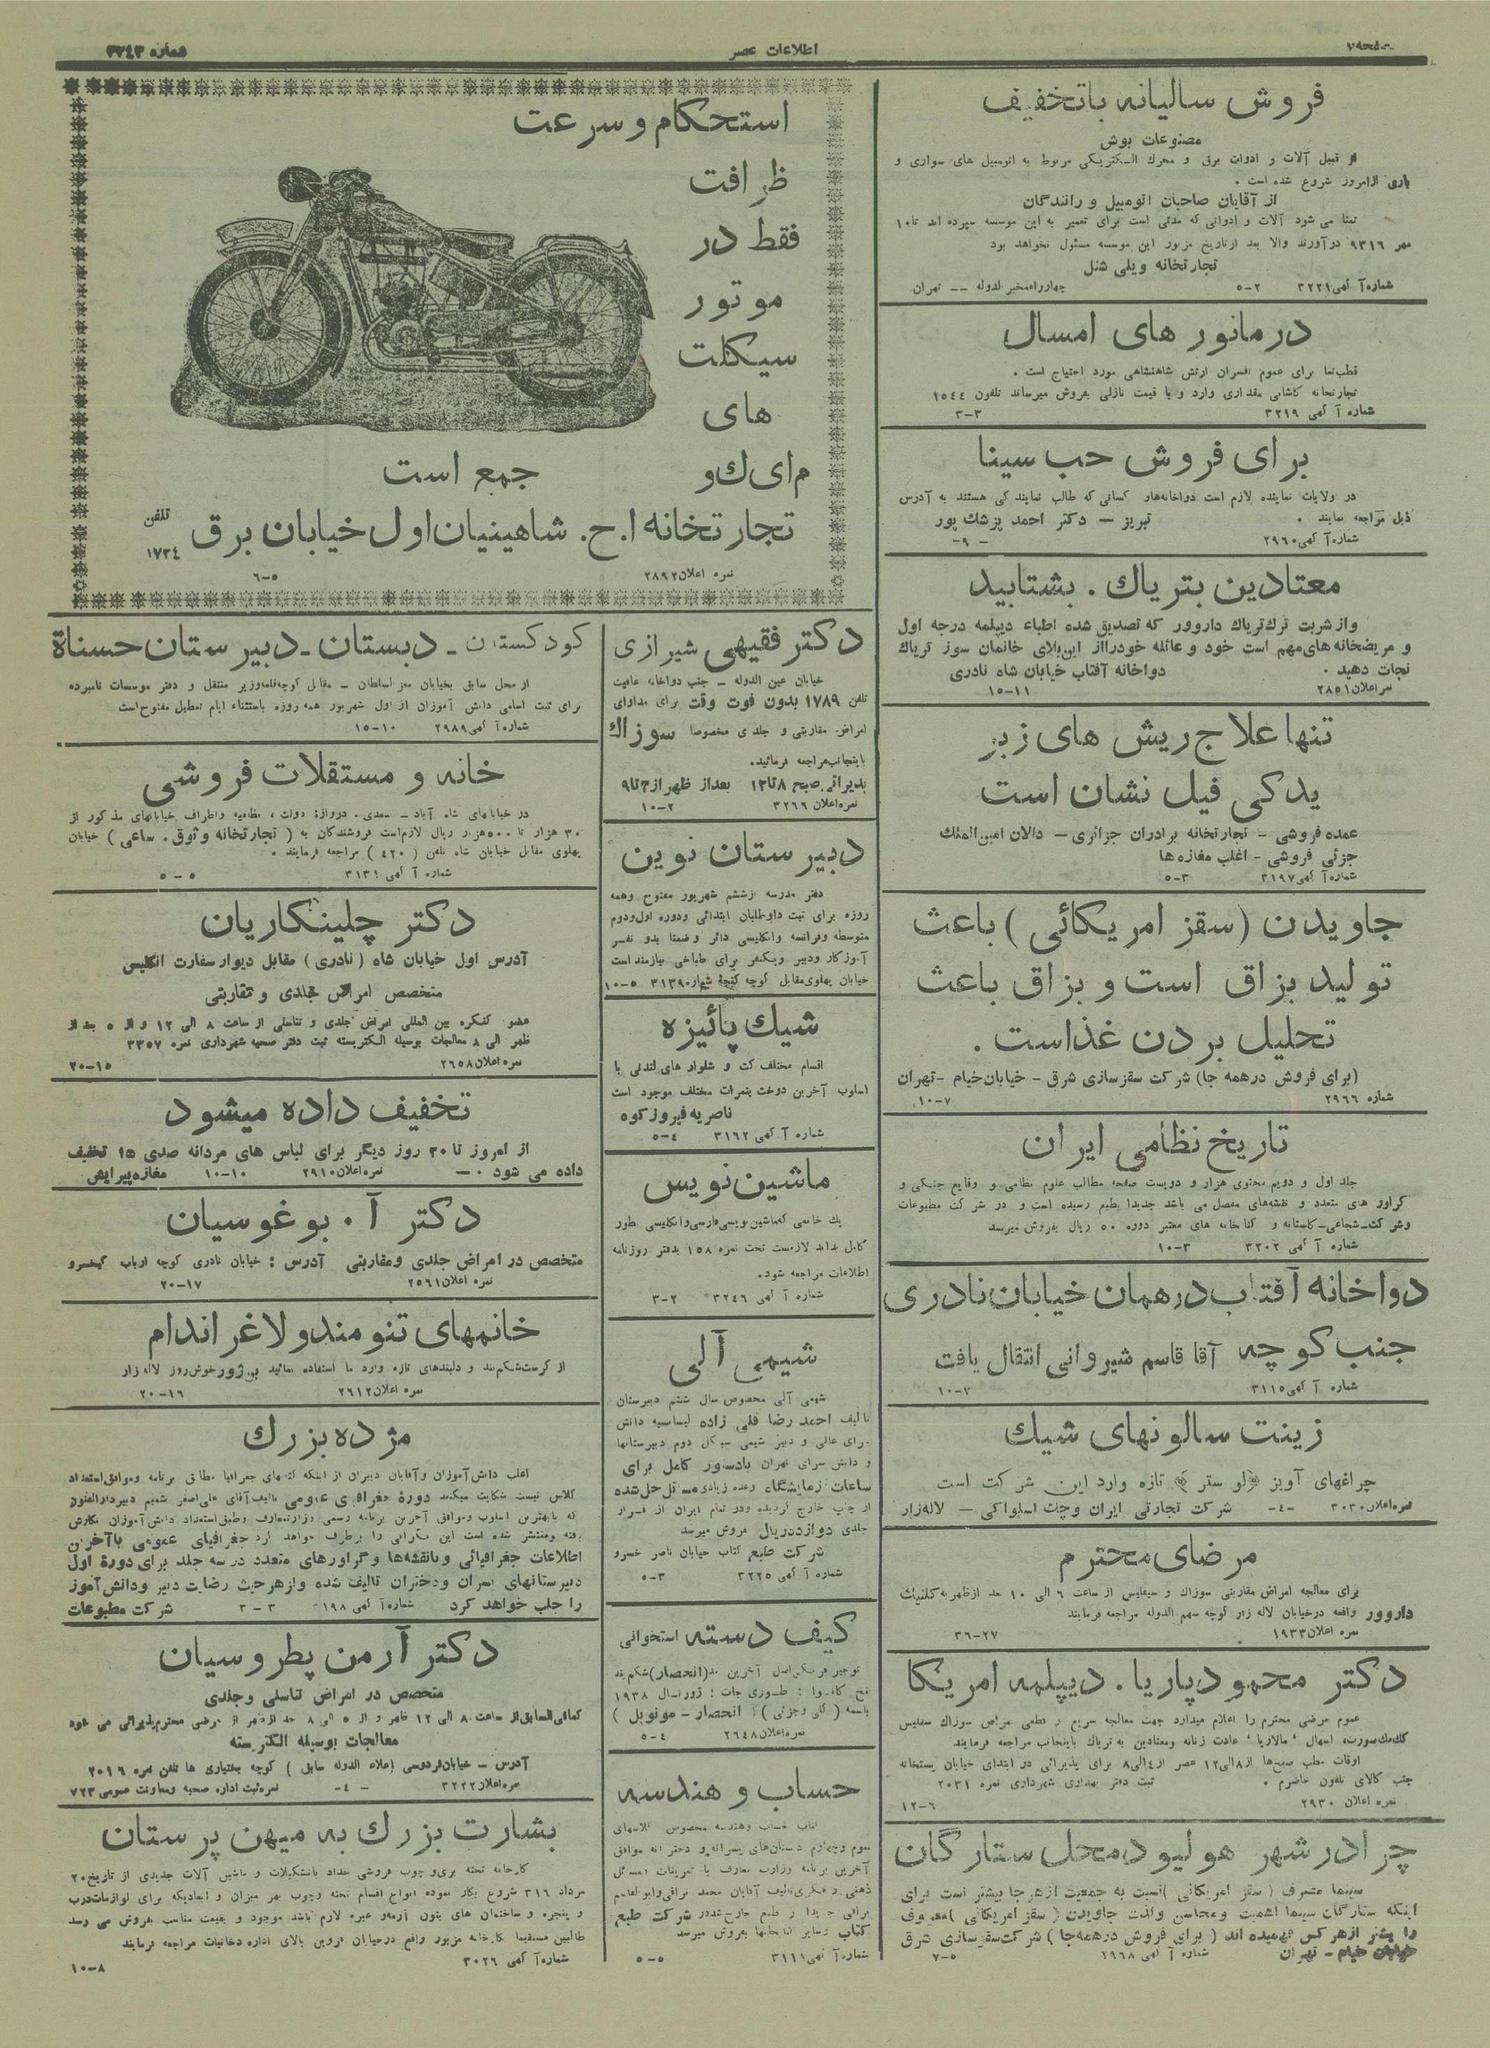 صفحه ۷
اطلاعات عصر
شماره ۳۷۴۳
فروش سالیانه باتخفیف
مصنوعات بوش
از قبیل آلات و ادوات برق و محرك الکتریکی مربوط به اتومبیل های سواری و
باری ازامروز شروع شده است .
از آقایان صاحبان اتومبیل و رانندگان
تمنا می شود آلات و ادواتی که مدتی است برای تعمیر به این موسسه سپرده اند تا ۱۰
مهر ۹۳۱۶ درآورند والا بعد ازتاریخ مزبور این موسسه مسئول نخواهد بود
تجارتخانه ویلی شنل
شماره آگهی ۳۲۲۱ ۵-۲ چهارراه مخبرالدوله -- تهران
درمانور های امسال
قطب‌نما برای عموم افسران ارتش شاهنشاهی مورد احتیاج است .
تجارتخانه کاشانی مقداری وارد و با قیمت نازلی بفروش میرساند تلفون ۱۵۴۴
شماره آگهی ۳۲۱۹ ۳-۳
برای فروش حب سینا
در ولایات نماینده لازم است دواخانه‌هاو کسانی که طالب نمایندگی هستند به آدرس
ذیل مراجعه نمایند . تبریز - دکتر احمد پزشك پور
شماره آگهی ۲۹۶۰ -۹-
معتادین بتریاك . بشتابید
واز شربت ترك تریاك داروور که تصدیق شده اطباء دیپلمه درجه اول
و مریضخانه های مهم است خود و عائله خودرااز این‌بلای خانمان سوز تریاك
نجات دهید . دواخانه آفتاب خیابان شاه نادری
نمره اعلان ۲۸۵۱ ۱۵-۱۱
تنها علاج ریش های زبر
یدکی فیل نشان است
عمده فروشی - تجارتخانه برادران جزائری - دالان امین‌الملك
جزئی فروشی - اغلب مغازه ها
شماره آگهی ۳۱۹۷ ۵-۳
جاویدن (سقز امریکائی) باعث
تولید بزاق است و بزاق باعث
تحلیل بردن غذاست .
(برای فروش درهمه جا) شرکت سقزسازی شرق - خیابان‌خیام -تهران
شماره ۲۹۶۶ ۱۰-۷
تاریخ نظامی ایران
جلد اول و دویم محتوی هزار و دویست صفحه مطالب علوم نظامی و وقایع جنگی و
گراور های متعدد و نقشه‌های مفصل می باشد جدیدا بطبع رسیده است و در شرکت مطبوعات
وشرکت-شجاعی-کاستانه و کتابخانه های معتبر دوره ۵۰ ریال بفروش میرسد
شماره آگهی ۳۲۰۲ ۱۰-۳
دواخانه آفتاب درهمان خیابان نادری
جنب کوچه آقا قاسم شیروانی انتقال یافت
شماره آگهی ۳۱۱۵ ۱۰-۷
زینت سالونهای شیك
چراغهای آویز «لوستر» تازه وارد این شرکت است
نمره اعلان ۳۰۳۰ -۴- شرکت تجارتی ایران وچك اسلواکی - لاله‌زار
مرضای محترم
برای معالجه امراض مقاربتی سوزاك و سیفلیس از ساعت ۶ الی ۱۰ بعد ازظهر به کلنیك
داروور واقعه درخیابان لاله زار کوچه سهم الدوله مراجعه فرمایند
نمره اعلان ۱۹۳۳ ۳۶-۲۷
دکتر محمود پاریا. دیپلمه امریکا
عموم مرضی محترم را اعلام میدارد جهت معالجه سریع و قطعی امراض سوزاك سفلیس
کك‌مك‌صورت، اسهال "مالاریا" عادت زنانه ومعتادین به تریاك باینجانب مراجعه فرمایند
اوقات مطب صبح‌ها از ۸الی۱۲ عصر از ۴الی۸ برای پذیرائی در ابتدای خیابان پستخانه
جنب کالای تلفون حاضرم . ثبت دفتر بهداری شهرداری نمره ۲۰۳۱
نمره اعلان ۲۹۳۰ ۱۲-۶
چرا درشهر هولیود محل ستارگان
سینما مصرف (سقز امریکائی) نسبت به جمعیت ازهرجا بیشتر است برای
اینکه ستارگان سینما اهمیت ومحاسن ولذت جاویدن (سقز امریکائی) معروف
را بیشتر ازهرکس فهمیده اند (برای فروش درهمه‌جا) شرکت سقزسازی شرق
خیابان خیام - تهران شماره آگهی ۲۹۶۸ ۷-۵
استحکام و سرعت
ظرافت
فقط در
موتور
سیکلت
های
م‌ای‌ك‌و
جمع است
تجارتخانه ا.ح. شاهینیان اول خیابان برق تلفن ۱۷۳۴
نمره اعلان ۲۸۹۲ ۶-۵
دکتر فقیهی شیرازی
خیابان عین الدوله - جنب دواخانه عافیت
تلفن ۱۷۸۹ بدون فوت وقت برای مداوای
امراض مقاربتی و جلدی مخصوصا سوزاك
باینجانب مراجعه فرمائید.
پذیرائی صبح ۸تا۱۲ بعداز ظهر از ۳تا۹
نمره اعلان ۳۲۶۶ ۱۰-۲
دبیرستان نوین
دفتر مدرسه ازششم شهریور مفتوح وهمه
روزه برای ثبت داوطلبان ابتدائی ودوره اول‌ودوم
متوسطه وفرانسه وانگلیسی دائر وضمنا بدو نفر
آموزگار ودبیر ویکنفر برای طباخی نیازمند است
خیابان پهلوی‌مقابل کوچه گنجه شماره۳۱۳۹ ۱۰-۵
شیك پائیزه
اقسام مختلف کت و شلوار های لندنی با
اسلوب آخرین دوخت بنمرات مختلف موجود است
ناصریه فیروزکوه
شماره آگهی ۳۱۶۲ ۵-۴
ماشین نویس
یك خانمی که‌ماشین نویسی‌فارسی‌وانگلیسی بطور
کامل بداند لازمست تحت نمره ۱۵۸ بدفتر روزنامه
اطلاعات مراجعه شود.
شماره آگهی ۳۲۴۶ ۳-۲
شیمی آلی
شیمی آلی مخصوص سال ششم دبیرستان
تالیف احمد رضا قلی زاده لیسانسیه دانش
سرای عالی و دبیر شیمی سیکل دوم دبیرستانها
و دانش سرای تهران بادستور کامل برای
ساعات آزمایشگاه وعده زیادی‌مسائل حل‌شده
از چاپ خارج گردیده ودر تمام ایران از قرار
جلدی دوازده‌ریال بفروش میرسد
شرکت طبع کتاب خیابان ناصر خسرو
شماره آگهی ۳۲۲۵ ۵-۳
کیف دسته استخوانی
(انحصار) شکم‌بند
ژورنال ۱۹۳۸
(کلی وجزئی) انحصار - مونوپل)
نمره اعلان ۲۶۴۸ ۵-۴
حساب و هندسه
کتاب حساب وهندسه مخصوص کلاسهای
سوم وچهارم دبستان‌های پسرانه و دخترانه موافق
آخرین برنامه وزارت معارف با تمرینات ومسائل
ذهنی و فکری‌تالیف آقایان محمد نراقی‌وابوالقاسم
نراقی جدیدا از طبع خارج‌شده‌در شرکت طبع
کتاب وسایر کتابخانها بفروش میرسد
شماره آگهی ۳۱۱۱ ۵-۵
کودکستان - دبستان - دبیرستان حسنات
از محل سابق بخیابان معز السلطان - مقابل کوچه‌قائم‌وزیر منتقل و دفتر موسسات نامبرده
برای ثبت اسامی دانش آموزان از اول شهریور همه روزه باستثناء ایام تعطیل مفتوح است
شماره آگهی ۲۹۸۹ ۱۵-۱۰
خانه و مستقلات فروشی
در خیابانهای شاه آباد - سعدی، دروازه دولت ، نظامیه واطراف خیابانهای مذکور از
۳۰ هزار تا ۵۰۰هزار ریال لازم‌است فروشندگان به (تجارتخانه وثوق. ساعی) خیابان
پهلوی مقابل خیابان شاه تلفن (۴۲۰) مراجعه فرمایند .
شماره آگهی ۳۱۳۱ ۵-۵
دکتر چلینکاریان
آدرس اول خیابان شاه (نادری) مقابل دیوار سفارت انگلیس
متخصص امراض جلدی و مقاربتی
عضو کنگره بین المللی امراض جلدی و تناسلی از ساعت ۸ الی ۱۲ و از ۵ بعد از
ظهر الی ۸ معالجات بوسیله الکتریسته ثبت دفتر صحیه شهرداری نمره ۳۳۵۷
نمره اعلان ۲۶۵۸ ۲۰-۱۵
تخفیف داده میشود
از امروز تا ۳۰ روز دیگر برای لباس های مردانه صدی ۱۵ تخفیف
داده می شود .- نمره اعلان ۲۹۱۰ ۱۰-۱۰ مغازه پیرایش
دکتر آ. بوغوسیان
متخصص در امراض جلدی ومقاربتی آدرس : خیابان نادری کوچه ارباب کیخسرو
نمره اعلان ۲۵۶۱ ۲۰-۱۷
خانمهای تنومند و لاغر اندام
از کرست‌شکم‌بند و دلبندهای تازه وارد ما استفاده نمائید بن‌ژور خوش‌روز لاله زار
نمره اعلان ۲۶۱۲ ۲۰-۱۶
مژده بزرك
اغلب دانش‌آموزان وآقایان دبیران از اینکه کتابهای جغرافیا مطابق برنامه وموافق‌استعداد
کلاس نیست شکایت میکنند دوره جغرافیای عمومی تالیف آقای علی‌اصغر شمیم دبیردارالفنون
که بابهترین اسلوب وموافق آخرین برنامه رسمی وزارت‌معارف وطبق‌استعداد دانش‌آموزان نگارش
یافته ومنتشر شده است این نگرانی را برطرف خواهد کرد جغرافیای عمومی باآخرین
اطلاعات جغرافیائی وبانقشه‌ها وگراورهای متعدد در سه جلد برای دوره اول
دبیرستانهای پسران ودختران تالیف شده وازهرحیث رضایت دبیر ودانش‌آموز
را جلب خواهد کرد ۳-۳ شرکت مطبوعات
دکتر آرمن پطروسیان
متخصص در امراض تناسلی وجلدی
کمافی‌السابق‌از ساعت ۸ الی ۱۲ ظهر و از ۵ الی ۸ بعد ازظهر از مرضی محترم‌پذیرائی می شود
معالجات بوسیله الکتریسته
آدرس - خیابان‌فردوسی (علاء الدوله سابق) کوچه بختیاری ها تلفن نمره ۲۰۱۶
نمره اعلان ۳۲۲۲ -۴- نمره‌ثبت اداره صحیه ومعاونت عمومی ۷۲۳
بشارت بزرك به میهن پرستان
کارخانه تخته بری‌و چوب فروشی حداد باتشکیلات و ماشین آلات جدیدی از تاریخ ۲۰
مرداد ۳۱۶ شروع بکار نموده انواع اقسام تخته وچوب بهر میزان و ابعادیکه برای لوازمات‌درب
و پنجره و ساختمان های بتون آرمه‌و غیره لازم باشد موجود و بقیمت مناسب بفروش می رسد
طالبین مستقیما بکارخانه مزبور واقع درخیابان قزوین بالای اداره دخانیات مراجعه فرمایند
شماره آگهی ۳۰۲۶ ۱۰-۸